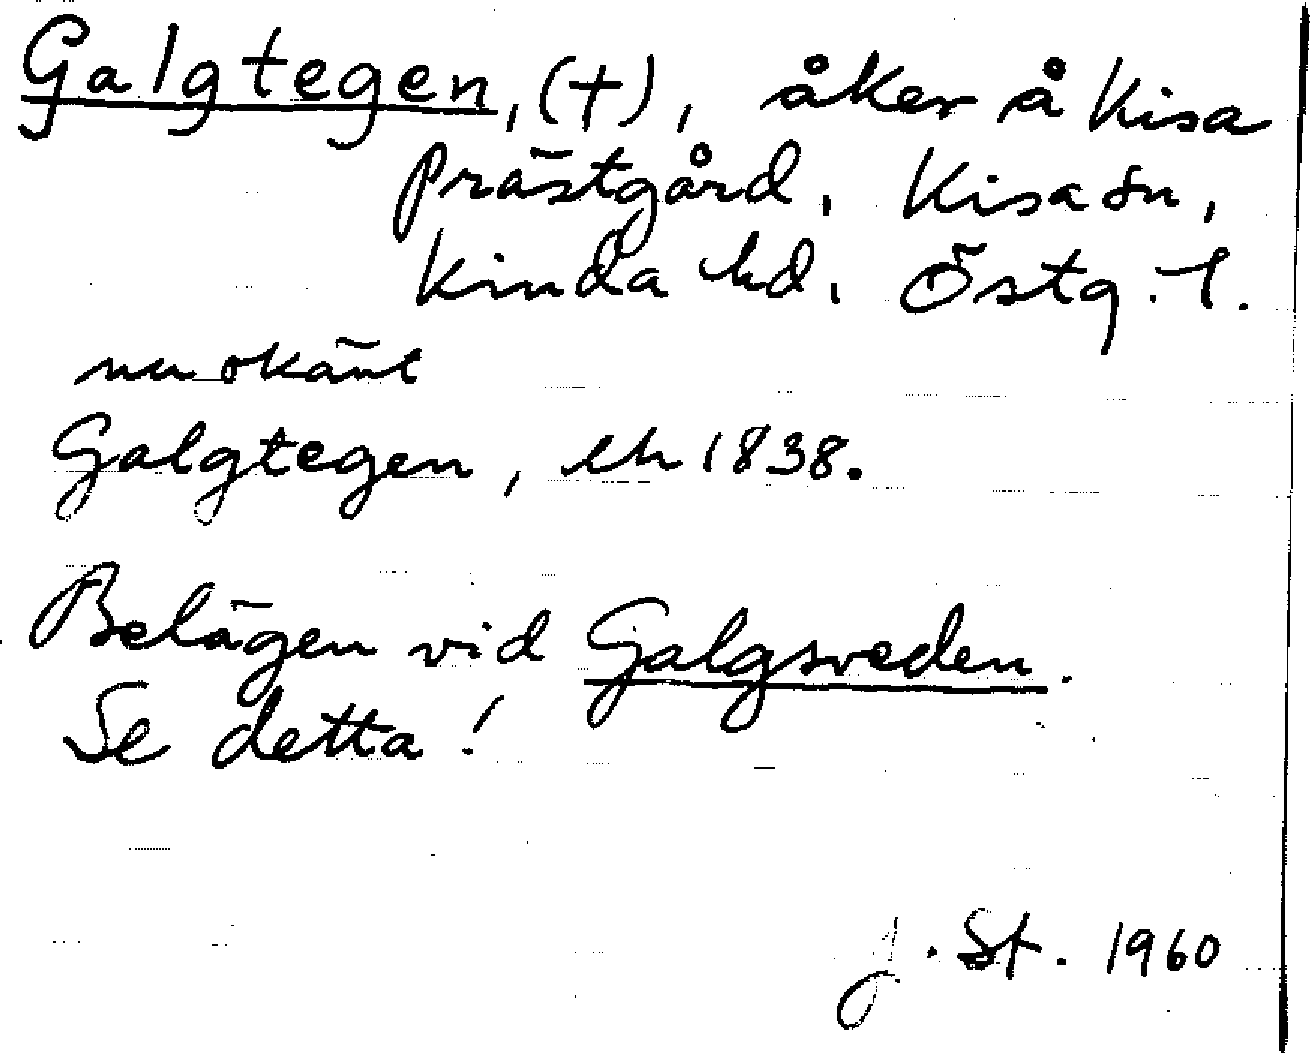 Galgtegen, (†), åker å Kisa
prästgård, Kisa sn,
Kinda hd, Östg. l.
nu okänt
Galgtegen, lh 1838.
Belägen vid Galgsveden.
Se detta!
J. St. 1960